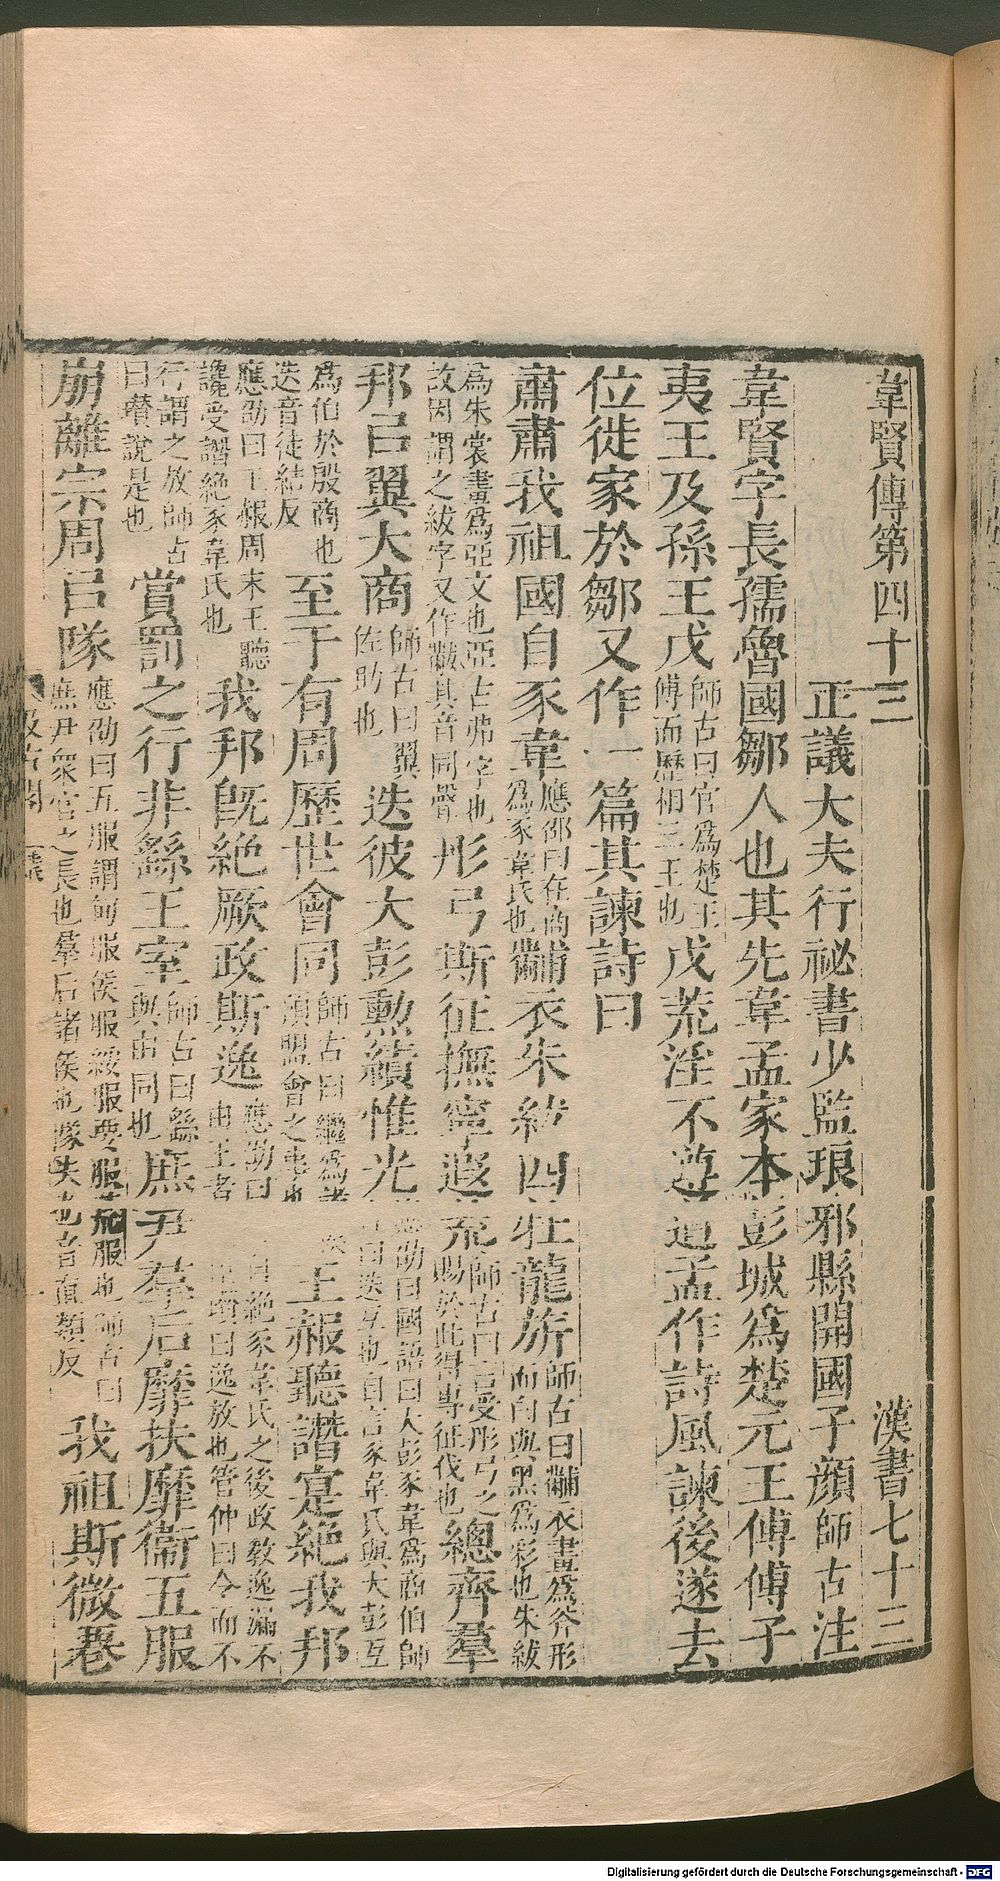 韋賢傳第四十三 漢書七十三
正議大夫行祕書少監琅邪縣開國子顏師古注
韋賢字長孺魯國鄒人也其先韋孟家本彭城爲楚元王傅傅子
夷王及孫王戊師古曰官爲楚王傅而歷相三王也戊荒淫不遵道孟作詩風諫後遂去
位徙家於鄒又作一篇其諫詩曰
肅肅我祖國自豕韋應劭曰在商爲豕韋氏也黼衣朱紱四牡龍旂師古曰黼衣畫爲斧形而白與黑爲彩也朱紱
爲朱裳畫爲亞文也亞古弗字也故因謂之紱字又作黻其音同聲彤弓斯征撫寧遐荒師古曰言受彤弓之賜於此得專征伐也總齊羣
邦㠯翼大商師古曰翼佐助也迭彼大彭勳績惟光應劭曰國語曰大彭豕韋爲商伯師古曰迭互也自言豕韋氏與大彭互
爲伯於殷商也迭音徒結反至于有周歷世會同師古曰繼爲諸侯預盟會之事也王赧聽譖寔絕我邦
應劭曰王赧周末王聽讒受譖絕豕韋氏也我邦旣絕厥政斯逸應劭曰由王者自絕豕韋氏之後政教逸漏不由王者臣瓚曰逸放也管仲曰令而不
行謂之放師古曰瓚說是也賞罰之行非繇王室師古曰繇與由同也庶尹羣后靡扶靡衞五服
崩離宗周㠯隊應劭曰五服謂甸服侯服綏服要服荒服也師古曰庶尹衆官之長也羣后諸侯也隊失也音直類反我祖斯微䙴
汲古閣
Digitalisierung gefördert durch die Deutsche Forschungsgemeinschaft - DFG